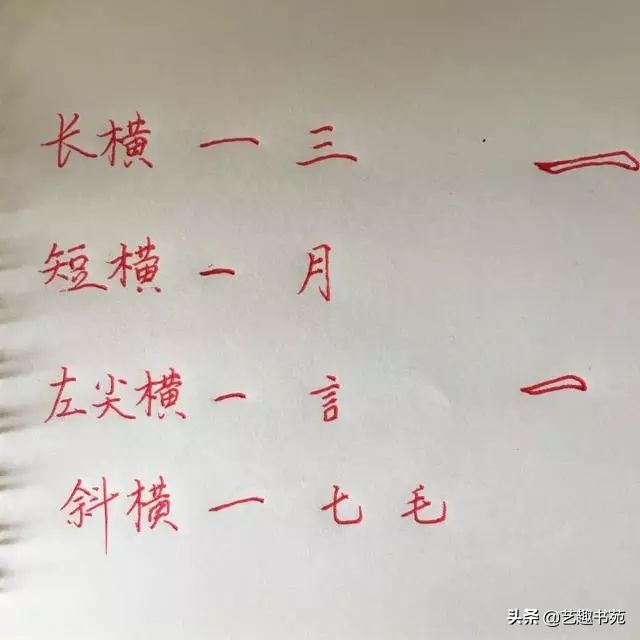 长横 一 三
短横 一 月
左尖横 一 言
斜横 一 七 毛
头条 @艺趣书苑